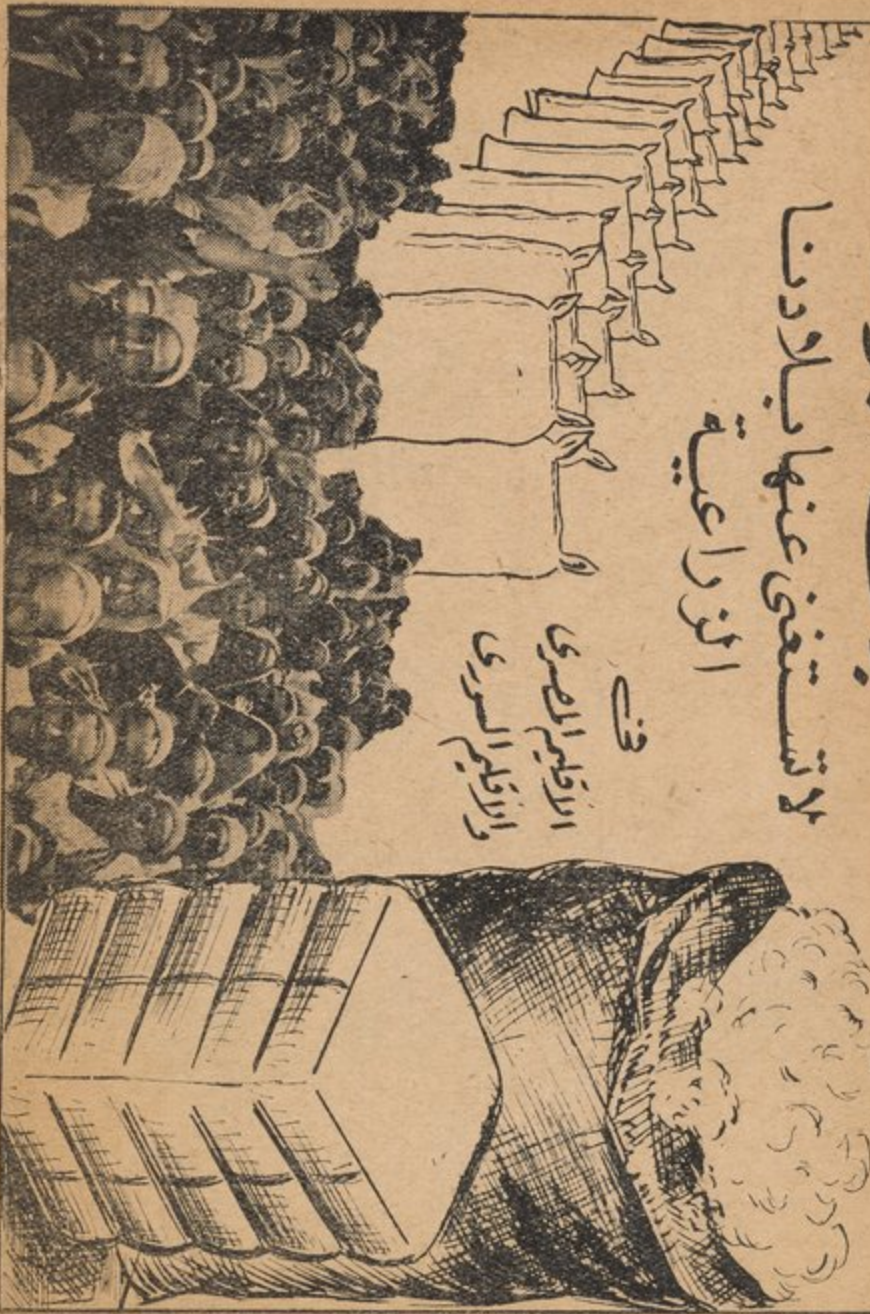 لا تستغنى عنها بلادنا
الزراعية
في
الاقليم المصرى
والاقليم السورى